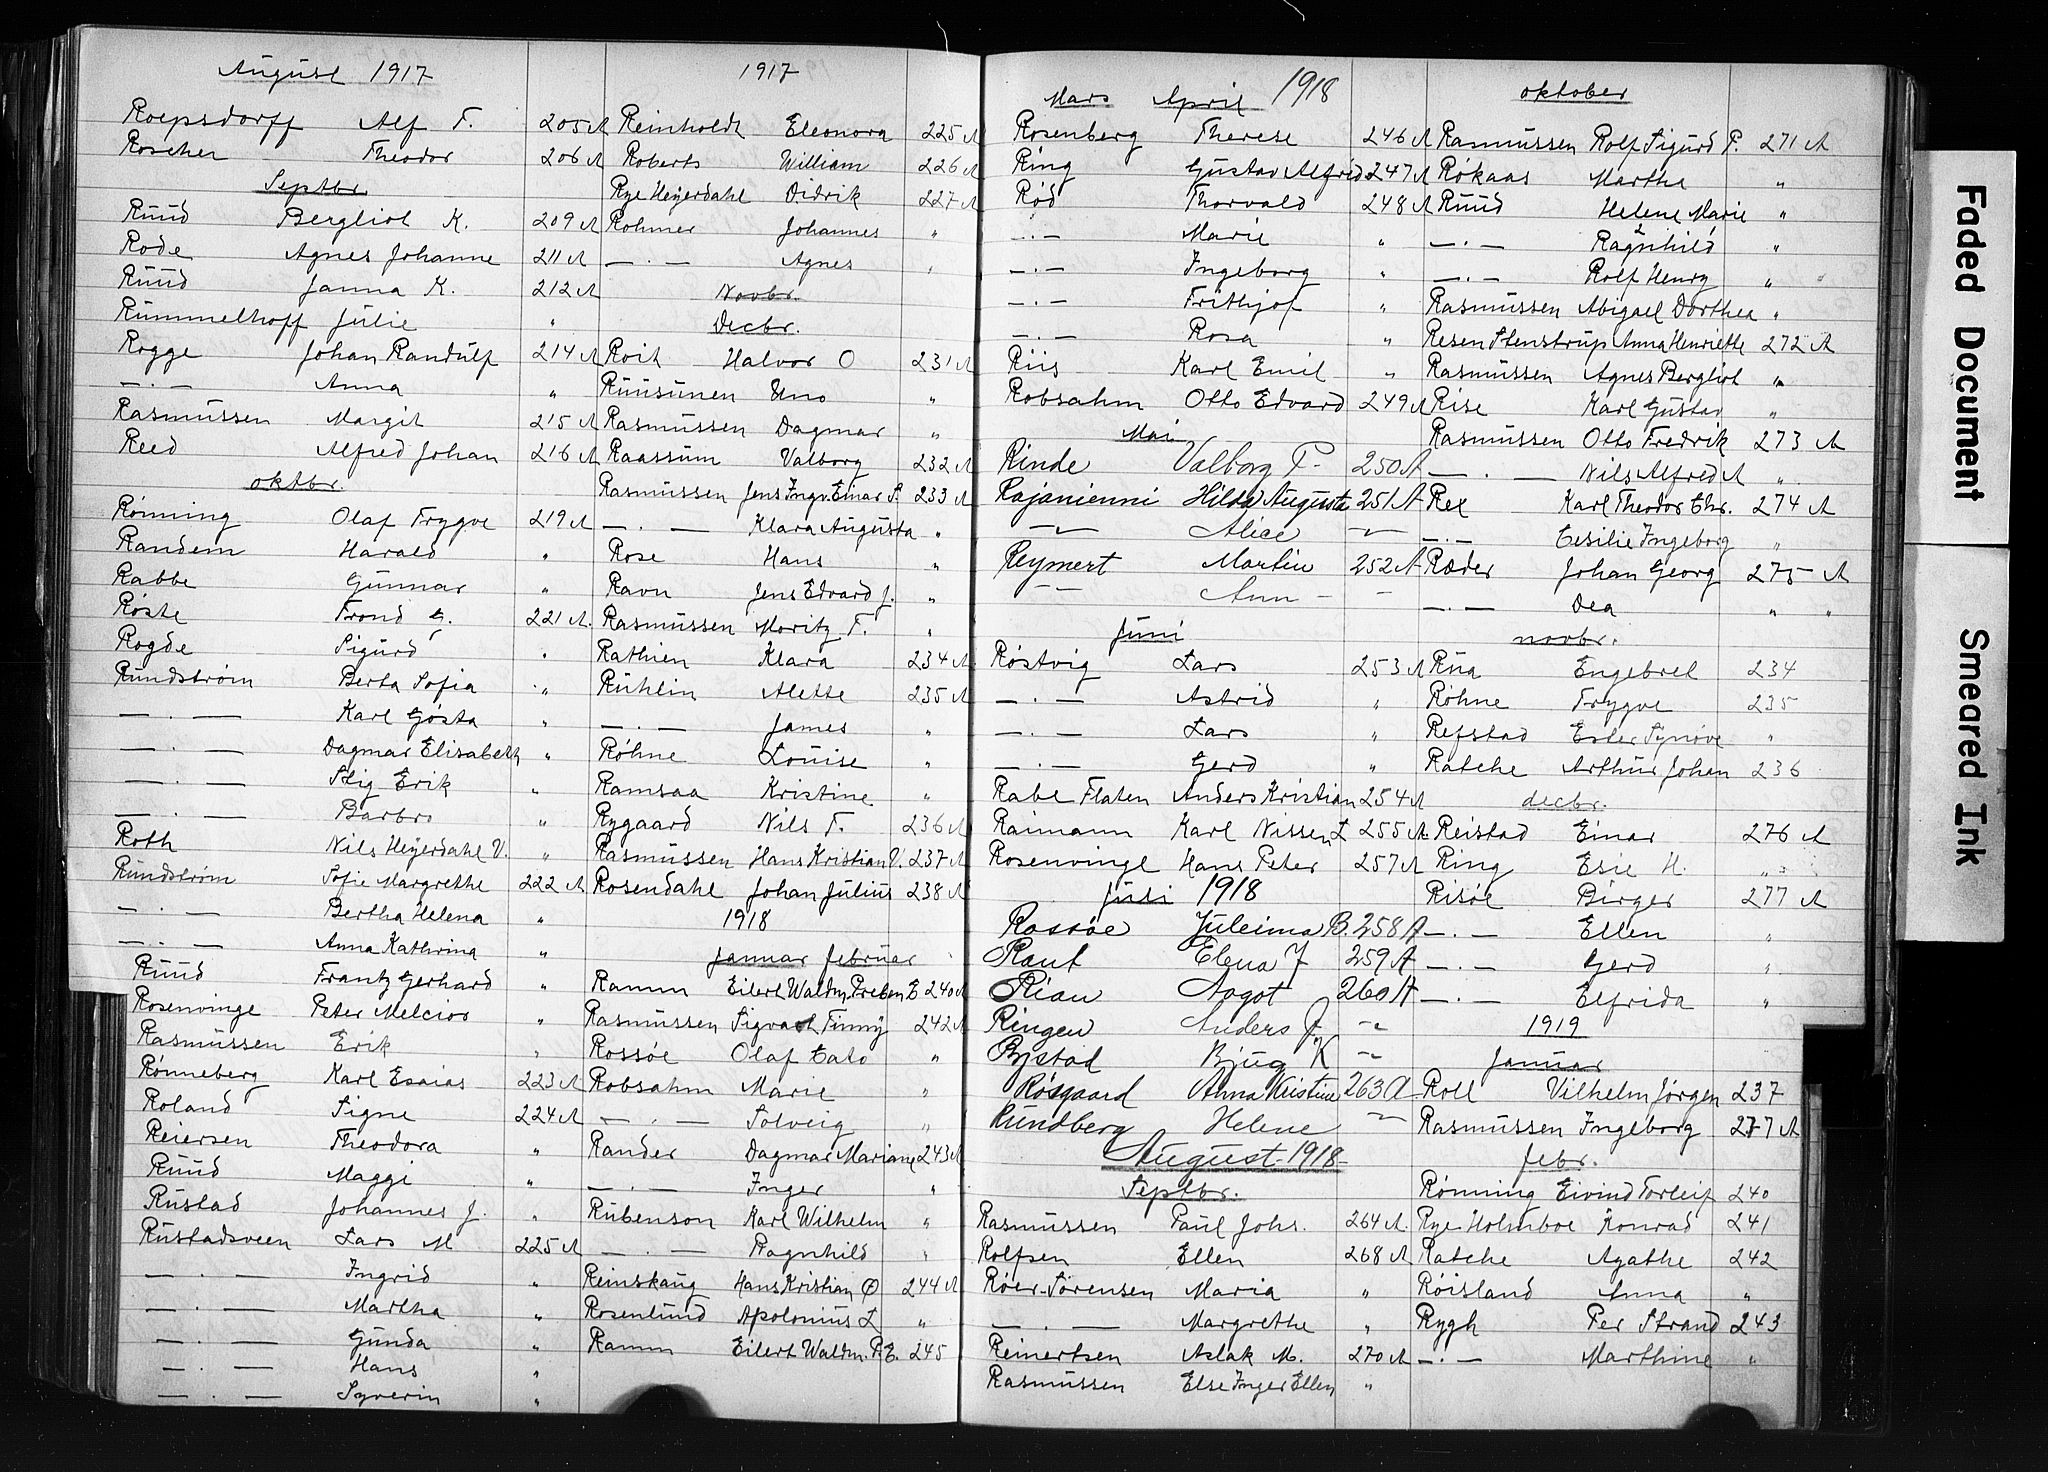 August 1917
Roepsdorff Alf F. 205 A
Roscher Theodor 206 A
Septbr.
Ruud Bergliot K. 209 A
Rode Agnes Johanne 211 A
Ruud Janna K. 212 A
Rummelhoff Julie "
Rogge Johan Randulf 214 A
— . — Anna "
Rasmussen Margit 215 A
Reed Alfred Johan 216 A
oktbr.
Rønning Olaf Trygve 219 A
Randem Harald "
Rabbe Gunnar "
Røste Trond G. 221 A.
Rogde Sigurd "
Rundstrøm Berta Sofia "
— . — Karl Gösta "
— . — Dagmar Elisabeth "
— . — Stig Erik "
— . — Barbro "
Roth Nils Heyerdahl V. "
Rundstrøm Sofie Margrethe 222 A
— . — Bertha Helena "
— . — Anna Kathrina "
Ruud Frantz Gerhard "
Rosenvinge Peter Melcior "
Rasmussen Erik "
Rønneberg Karl Esaias 223 A
Roland Signe 224 A
Reiersen Theodora "
Ruud Maggi "
Rustad Johannes J. "
Rustadsveen Lars M 225 A
— . — Ingrid "
— . — Martha "
— . — Gunda "
— . — Hans "
— . — Syverin "
1917
Reinholdt Eleonora 225 A
Roberts William 226 A
Rye Heyerdahl Didrik 227 A
Rohmer Johannes "
— . — Agnes "
Novbr.
Decbr.
Roit Halvor O 231 A
Ruusunen Uno "
Rasmussen Dagmar "
Raassum Valborg 232 A
Rasmussen Jens Ingv. Einar S. 233 A
— . — Klara Augusta "
Rose Hans "
Ravn Jens Edvard J. "
Rasmussen Moritz F. "
Rathien Klara 234 A
Ruhlin Alette 235 A
— . — James "
Røhne Louise "
Ramsaa Kristine "
Rygaard Nils T. 236 A
Rasmussen Hans Kristian V. 237 A
Rosendahl Johan Julius 238 A
1918
Januar februer
Ramm Eilert Waldm. Preben E 240 A
Rasmussen Sigvart Finny 242 A
Rossöe Olaf Cato "
Robsahm Marie "
— . — Solveig "
Rander Dagmar Mariane 243 A
— . — Inger "
Rubenson Karl Wilhelm "
— . — Ragnhild "
Reinskaug Hans Kristian Ø 244 A
Rosenlund Apolonius L "
Ramm Eilert Waldm. P.E. 245
Mars April 1918
Rosenberg Therese 246 A
Ring Gustav Alfred 247 A
Rød Thorvald 248 A
— . — Marie "
— . — Ingeborg "
— . — Frithjof "
— . — Rosa "
Riis Karl Emil "
Robsahm Otto Edvard 249 A
Mai
Rinde Valborg P- 250 A
Rajanienni Hilda Augusta 251 A
— " — Alice "
Reymert Martin 252 A
— " — Ann - -
Juni
Røstvig Lars 253 A
— . — Astrid "
— . — Lars "
— . — Gerd "
Rabe Flaten Anders Kristian 254 A
Raimann Karl Nissen L 255 A
Rosenvinge Hans Peter 257 A
Juli 1918
Rossöe Juleima B. 258 A
Raut Elena J 259 A
Rian Aagot 260 A
Ringen Anders J "
Rjstad Bjug K "
Røsgaard Anna Kristine 263 A
Rundberg Helene "
August-1918-
Septbr.
Rasmussen Paul Johs. 264 A.
Rolfsen Ellen 268 A
Røer-Sørensen Maria "
— . — Margrethe "
Reinertsen Aslak M. 270 A
Rasmussen Else Inger Ellen "
oktober
Rasmussen Rolf Sigurd P. 271 A
Røkaas Martha "
Ruud Helene Marie "
— . — Ragnhild "
— . — Rolf Henry "
Rasmussen Abigael Dorthea "
Resen Stenstrup Anna Henriette 272 A
Rasmussen Agnes Bergliot "
Rise Karl Gustav "
Rasmussen Otto Fredrik 273 A
— . — Nils Alfred A "
Rex Karl Theodor Chr. 274 A
— . — Cesilie Ingeborg "
Ræder Johan Georg 275 A
— . — Dea "
novbr.
Rua Engebret 234
Røhne Trygve 235
Refstad Ester Synøve "
Ratche Arthur Johan 236
decbr.
Reistad Einar 276 A
Ring Esie H. "
Risøe Birger 277 A
— . — Ellen "
— . — Gerd "
— . — Elfrida "
1919
Januar
Roll Vilhelm Jørgen 237
Rasmussen Ingeborg 277 A
febr.
Rønning Eivind Torleif 240
Rye Holmboe Konrad 241
Ratche Agathe 242
Røisland Anna "
Rygh Per Strand 243
— . — Marthine "
Faded Document
Smeared Ink